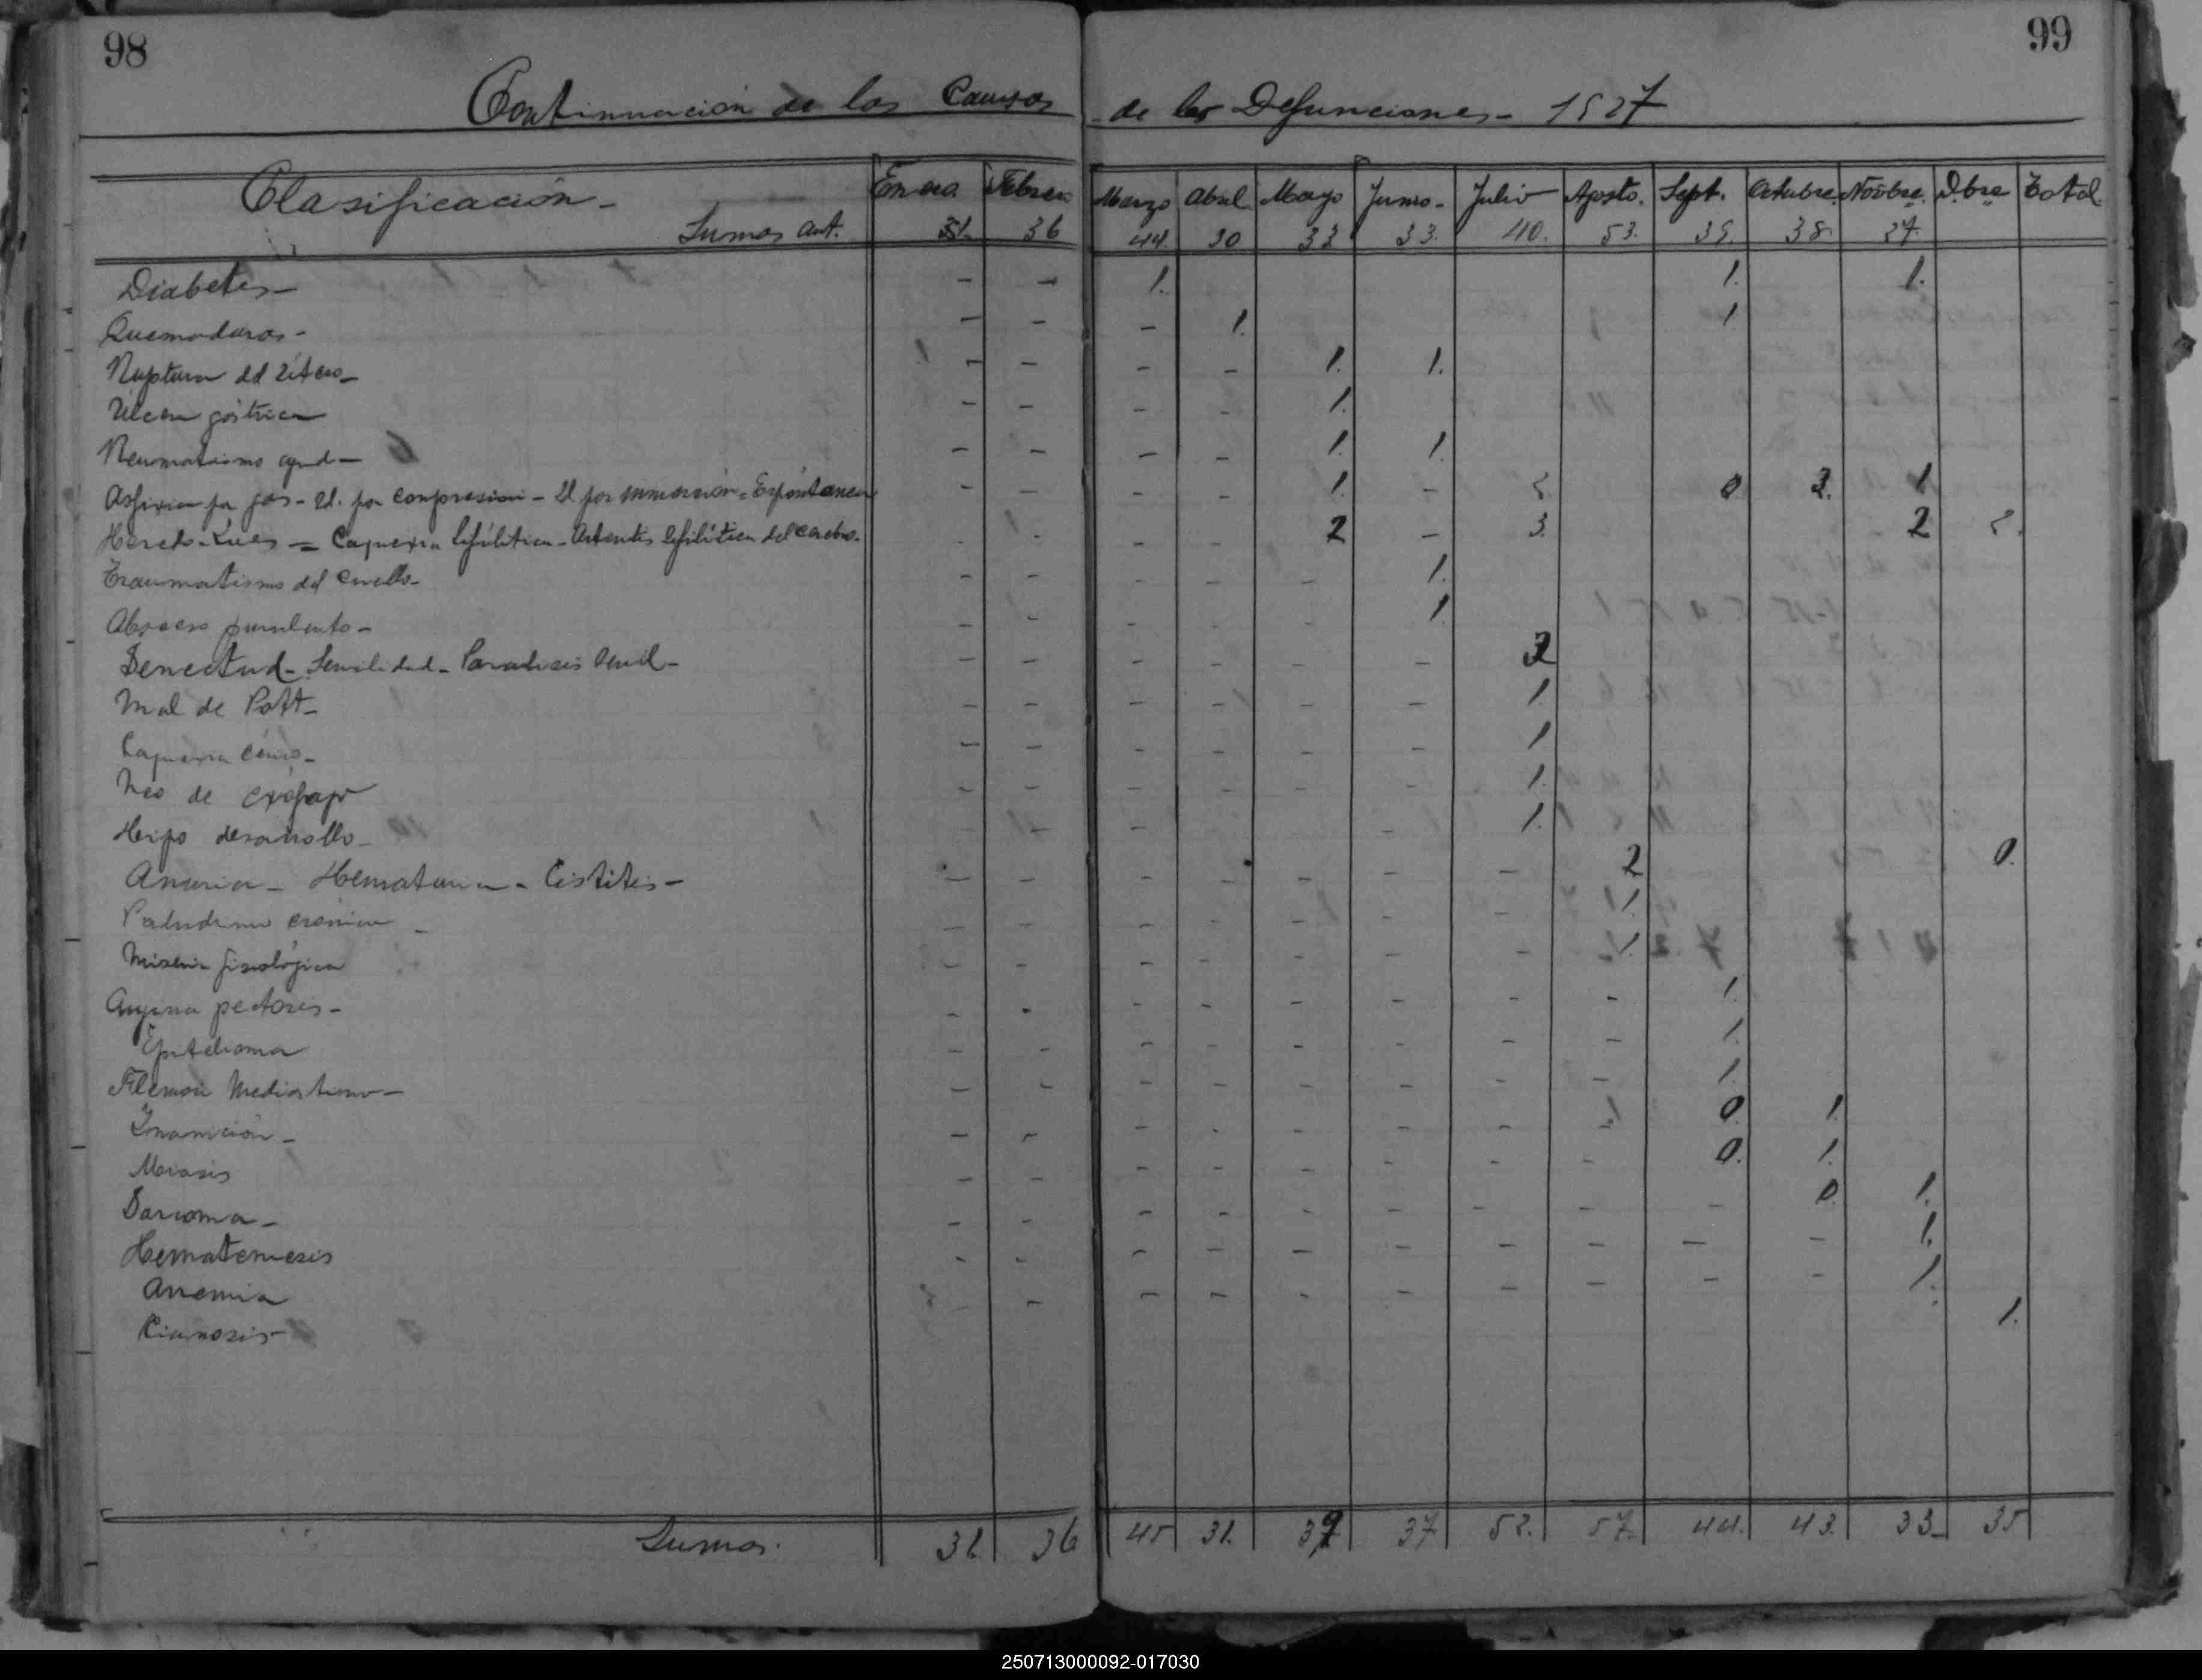 98
99
Continuación de las Causas de las Defunciones - 1927
Clasificación - Enero Febrero Marzo Abril Mayo Junio - Julio Agosto. Sept. Octubre. Novbre. Dbre Total
Sumas ant. 31 36 44. 30 33 33. 40. 53. 39. 38. 27.
Diabetes - - - 1. 1. 1.
Quemaduras - - - - 1. 1
Ruptura del Útero - - - - - 1. 1.
Úlcera gástrica - - - - 1.
Reumatismo agud - - - - - 1. 1.
Asfixia por gas - Id. por compresion - Id por inmersión = Espóntanea - - - - 1. - 2 0 3. 1
Heredo-Lúes = Caquexia Sifilitica - Arteritis Sifilitica del cerebro. - - - - 2 - 3. 2 2.
Traumatismo del Cuello - - - - - - 1.
Absceso purulento - - - - - - 1
Senectud - Senilidad - Paralisis Senil - - - - - - - 3
Mal de Pott - - - - - - - 1.
Caquexia - - - - - - - 1
Neo de exófago - - - - - - 1.
Hipo desarrollo - - - - - 1.
Anuria - Hematuria - Cistitis - - - - - - - - 2 0.
Paludismo crónico - - - - - - - - 1.
Miseria fisiológica - - - - - - - 1.
Angina pectoris - - - - - - - - - 1.
Epitelioma - - - - - - - - 1.
Flemon Mediastino - - - - - - - - - 1.
Inanición - - - - - - - - - 0. 1.
Meiosis - - - - - - - - 0. 1.
Sarcoma - - - - - - - - - - 0. 1.
Hematemesis - - - - - - - - - - 1.
Anemia - - - - - - - - - 1.
Cianosis - 1.
Sumas. 31 36 45 31. 39 37 52. 57. 44. 43. 33 35
250713000092-017030